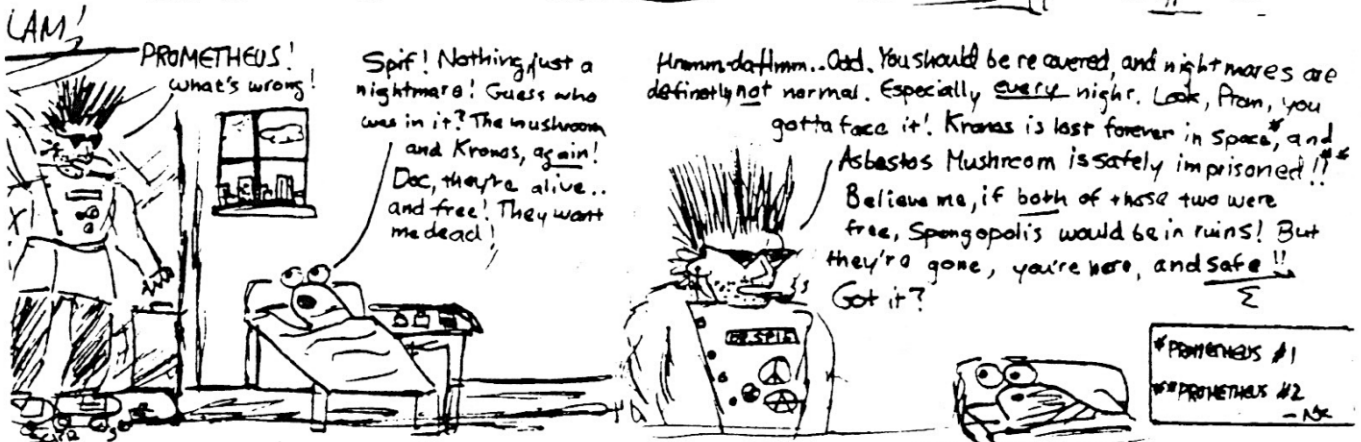 LAM!
PROMETHEUS!
what's wrong!
Spif! Nothing, just a
nightmare! Guess who
was in it? The mushroom
and Kronos, again!
Doc, they're alive..
and free! They want
me dead!
Hmmm-dahmm.. Odd. You should be recovered, and nightmares are
definetly not normal. Especially every night. Look, Prom, you
gotta face it! Kronos is lost forever in space,* and
Asbestos Mushroom is safely imprisoned!!**
Believe me, if both of those two were
free, Spongopolis would be in ruins! But
they're gone, you're here, and safe!!
Got it?
DR. SPIF
*PROMETHEUS #1
**PROMETHEUS #2